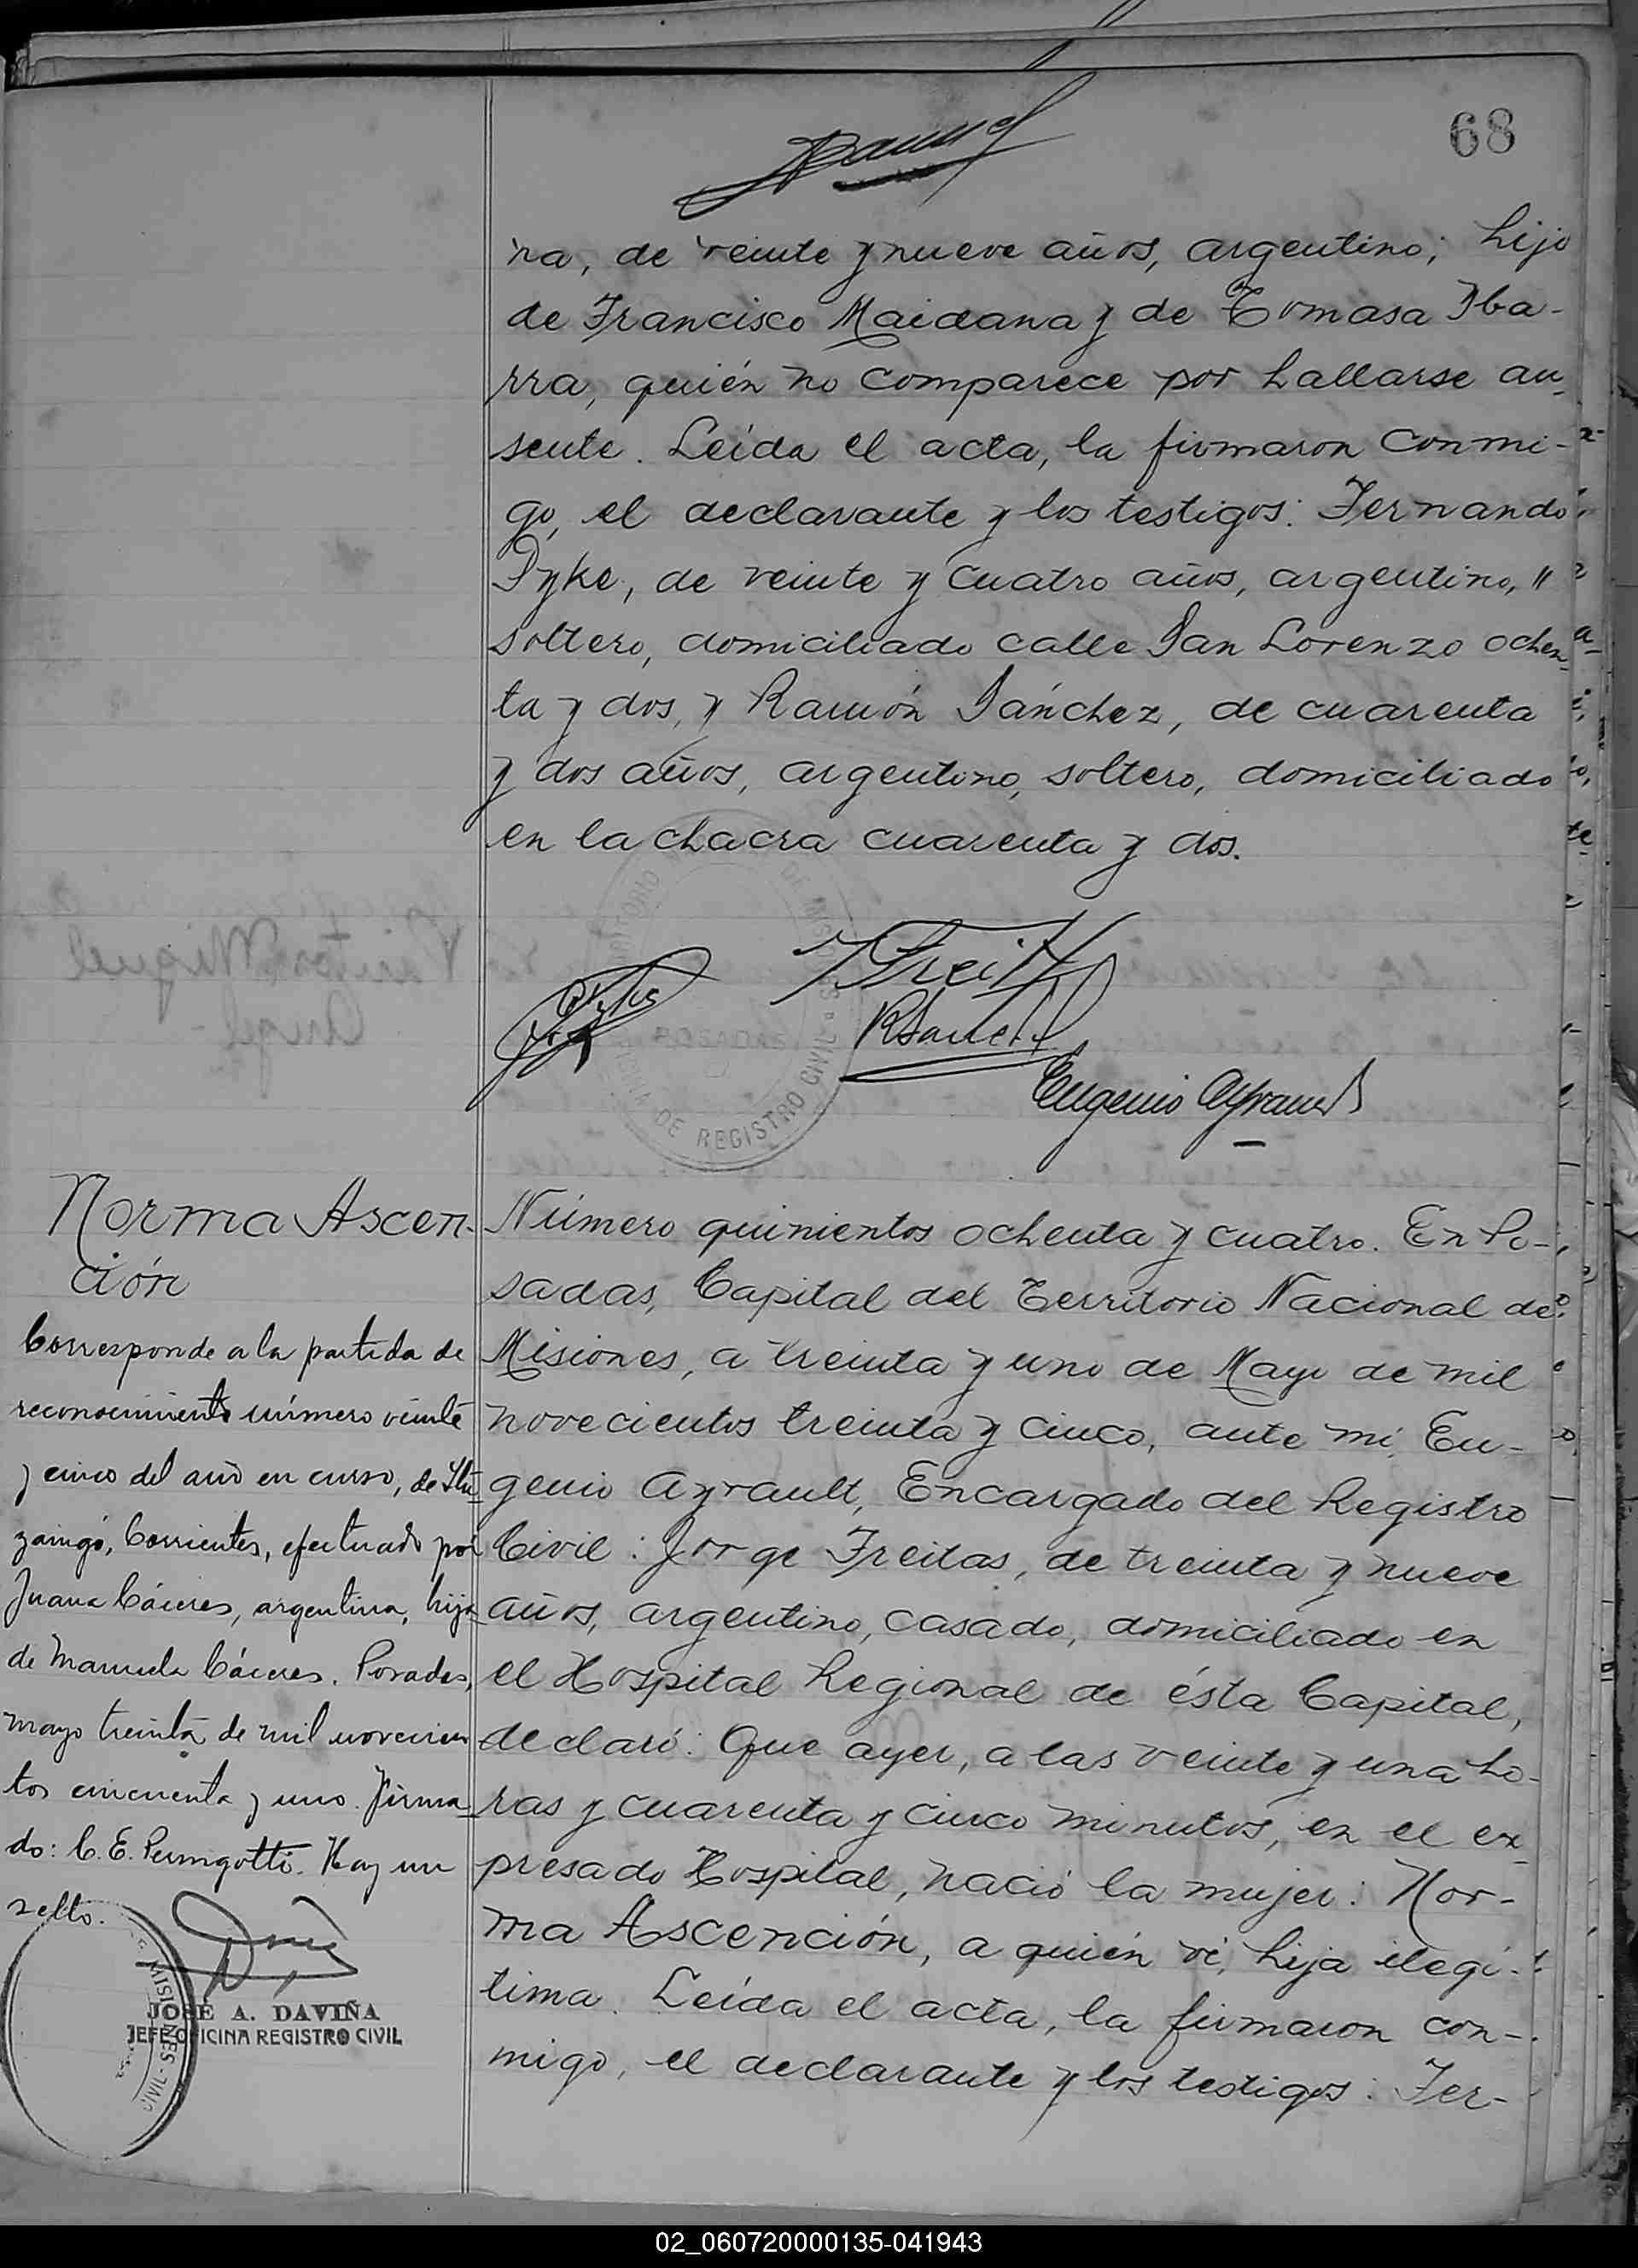 68
na, de veinte y nueve años, argentino; hijo
de Francisco Maidana y de Tomasa Iba-
rra, quién no comparece por hallarse au-
sente. Leída el acta, la firmaron conmi-
go, el declarante y los testigos: Fernando
Dyke, de veinte y cuatro años, argentino, "
soltero, domiciliado calle San Lorenzo ochen-
ta y dos, y Ramón Sánchez, de cuarenta
y dos años, argentino, soltero, domiciliado
en la chacra cuarenta y dos.
POSADAS
DE REGISTRO CIVIL
JFreitas
RSanchez
Eugenio Ayrault
Norma Ascen-
ción
Corresponde a la partida de
reconocimiento número veinte
y cinco del año en curso, de Itu-
zaingó, Corrientes, efectuado por
Juana Cáceres, argentina, hija
de Manuela Cáceres. Posadas,
mayo treinta de mil novecien
tos cincuenta y uno. Firma-
do: C. E. Perugotti. Hay un
sello.
JOSÉ A. DAVIÑA
JEFE OFICINA REGISTRO CIVIL
Número quinientos ochenta y cuatro. En Po-
sadas, Capital del Territorio Nacional de
Misiones, a treinta y uno de Mayo de mil
novecientos treinta y cinco, ante mí, Eu-
genio Ayrault, Encargado del Registro
Civil: Jorge Freitas, de treinta y nueve
años, argentino, casado, domiciliado en
el Hospital Regional de ésta Capital,
declaró: Que ayer, a las veinte y una ho-
ras y cuarenta y cinco minutos, en el ex-
presado Hospital, nació la mujer: Nor-
ma Ascención, a quién ví, hija ilegí-
tima. Leída el acta, la firmaron con-
migo, el declarante y los testigos: Fer-
02_060720000135-041943